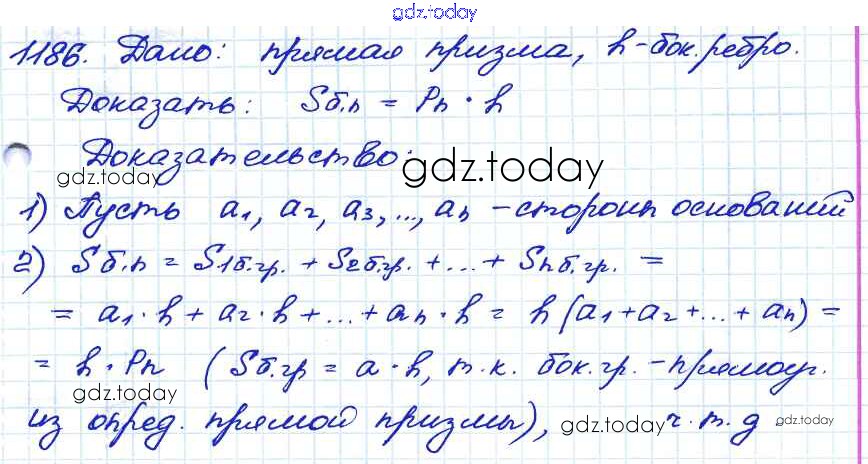 gdz.today
1186. Дано: прямая призма, h-бок.ребро.
Доказать: Sб.п = Pп · h
Доказательство:
gdz.today gdz.today
1) Пусть a1, a2, a3, ..., an - стороны оснований
2) Sб.п = S1б.гр. + S2б.гр. + ... + Snб.гр. =
= a1 · h + a2 · h + ... + an · h = h (a1 + a2 + ... + an) =
= h · Pп (Sб.гр = a · h, т.к. бок.гр. - прямоуг.
gdz.today gdz.today
из опред. прямой призмы), gdz.today ч.т.д gdz.today